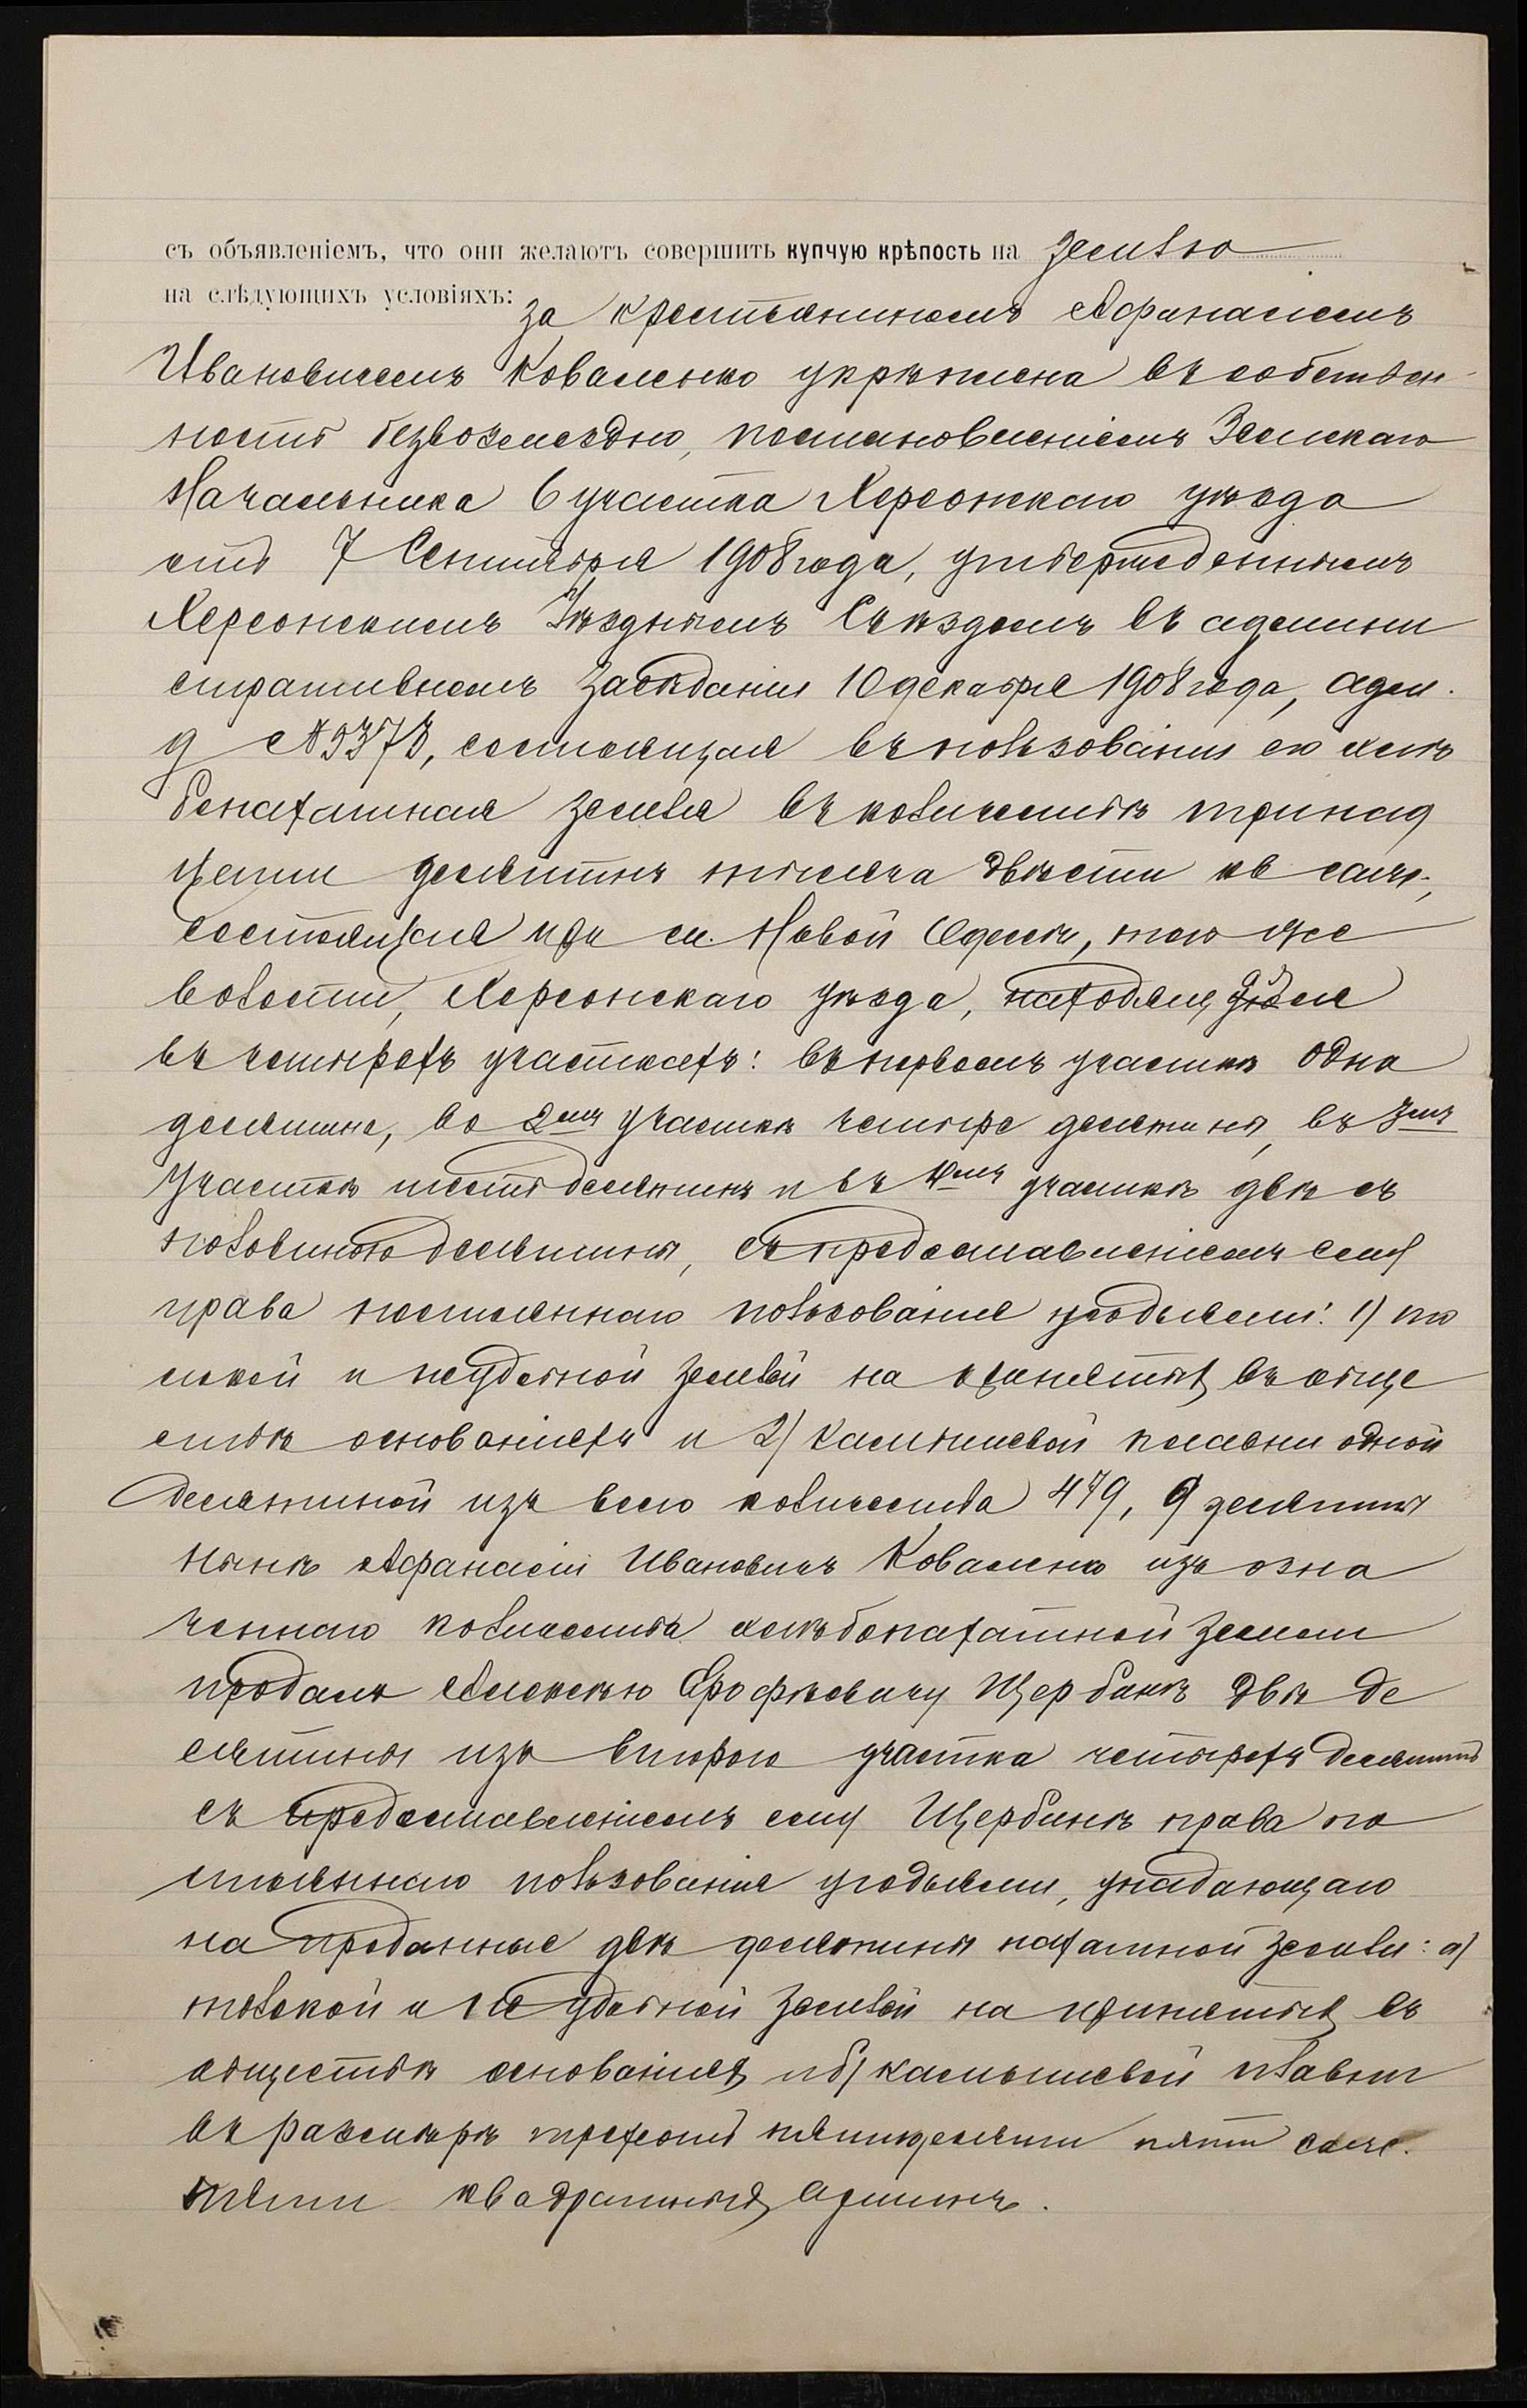 съ объявленіемъ, что они желаютъ совершить купчую крѣпость на землю
на слѣдующихъ условіяхъ: за крестьяниномъ Афанасіемъ
Ивановичемъ Коваленко укрѣплена въ собствен-
ность безвозмездно, постановленіемъ Земскаго
Начальника 6 участка Херсонскаго уѣзда
отъ 7 Сентября 1908 года, утвержденнымъ
Херсонскимъ Уѣзднымъ Съѣздомъ въ админи
стративномъ засѣданіи 10 декабря 1908 года, адм.
д №3373, состоящая въ пользованіи его хлѣ
бопахатная земля въ количествѣ тринад
цати десятинъ тысяча двѣсти кв саж.,
состоящая при м. Новой Одессѣ, того же
волости, Херсонскаго уѣзда, находящаяся
въ четырехъ участкахъ: въ первомъ участкѣ одна
десятина, во 2мъ участкѣ четыре десятины, въ 3мъ
участкѣ шесть десятинъ и въ 4мъ участкѣ двѣ съ
половиною десятины, съ предоставленіемъ ему
права постояннаго пользованія угодьями: 1) то
локой и неудобной землей на принятыхъ въ обще
ствѣ основаніяхъ и 2) камышевой плавни одной
десятиной изъ всего количества 479, 9 десятинъ
Нынѣ Афанасій Ивановичъ Коваленко изъ озна
ченнаго количества хлѣбопахатной земли
продалъ Алексѣю Ерофѣевичу Щербинѣ двѣ де
сятины изъ второго участка четырехъ десятинъ
съ предоставленіемъ ему Щербинѣ права по
стояннаго пользованія угодьями, упадающаго
на проданные двѣ десятины пахатной земли: а)
толокой и неудобной землей на принятыхъ въ
обществѣ основаніяхъ и б) камышевой плавни
въ размѣрѣ трехсотъ пятидесяти пяти саж.
пяти квадратныхъ аршинъ.